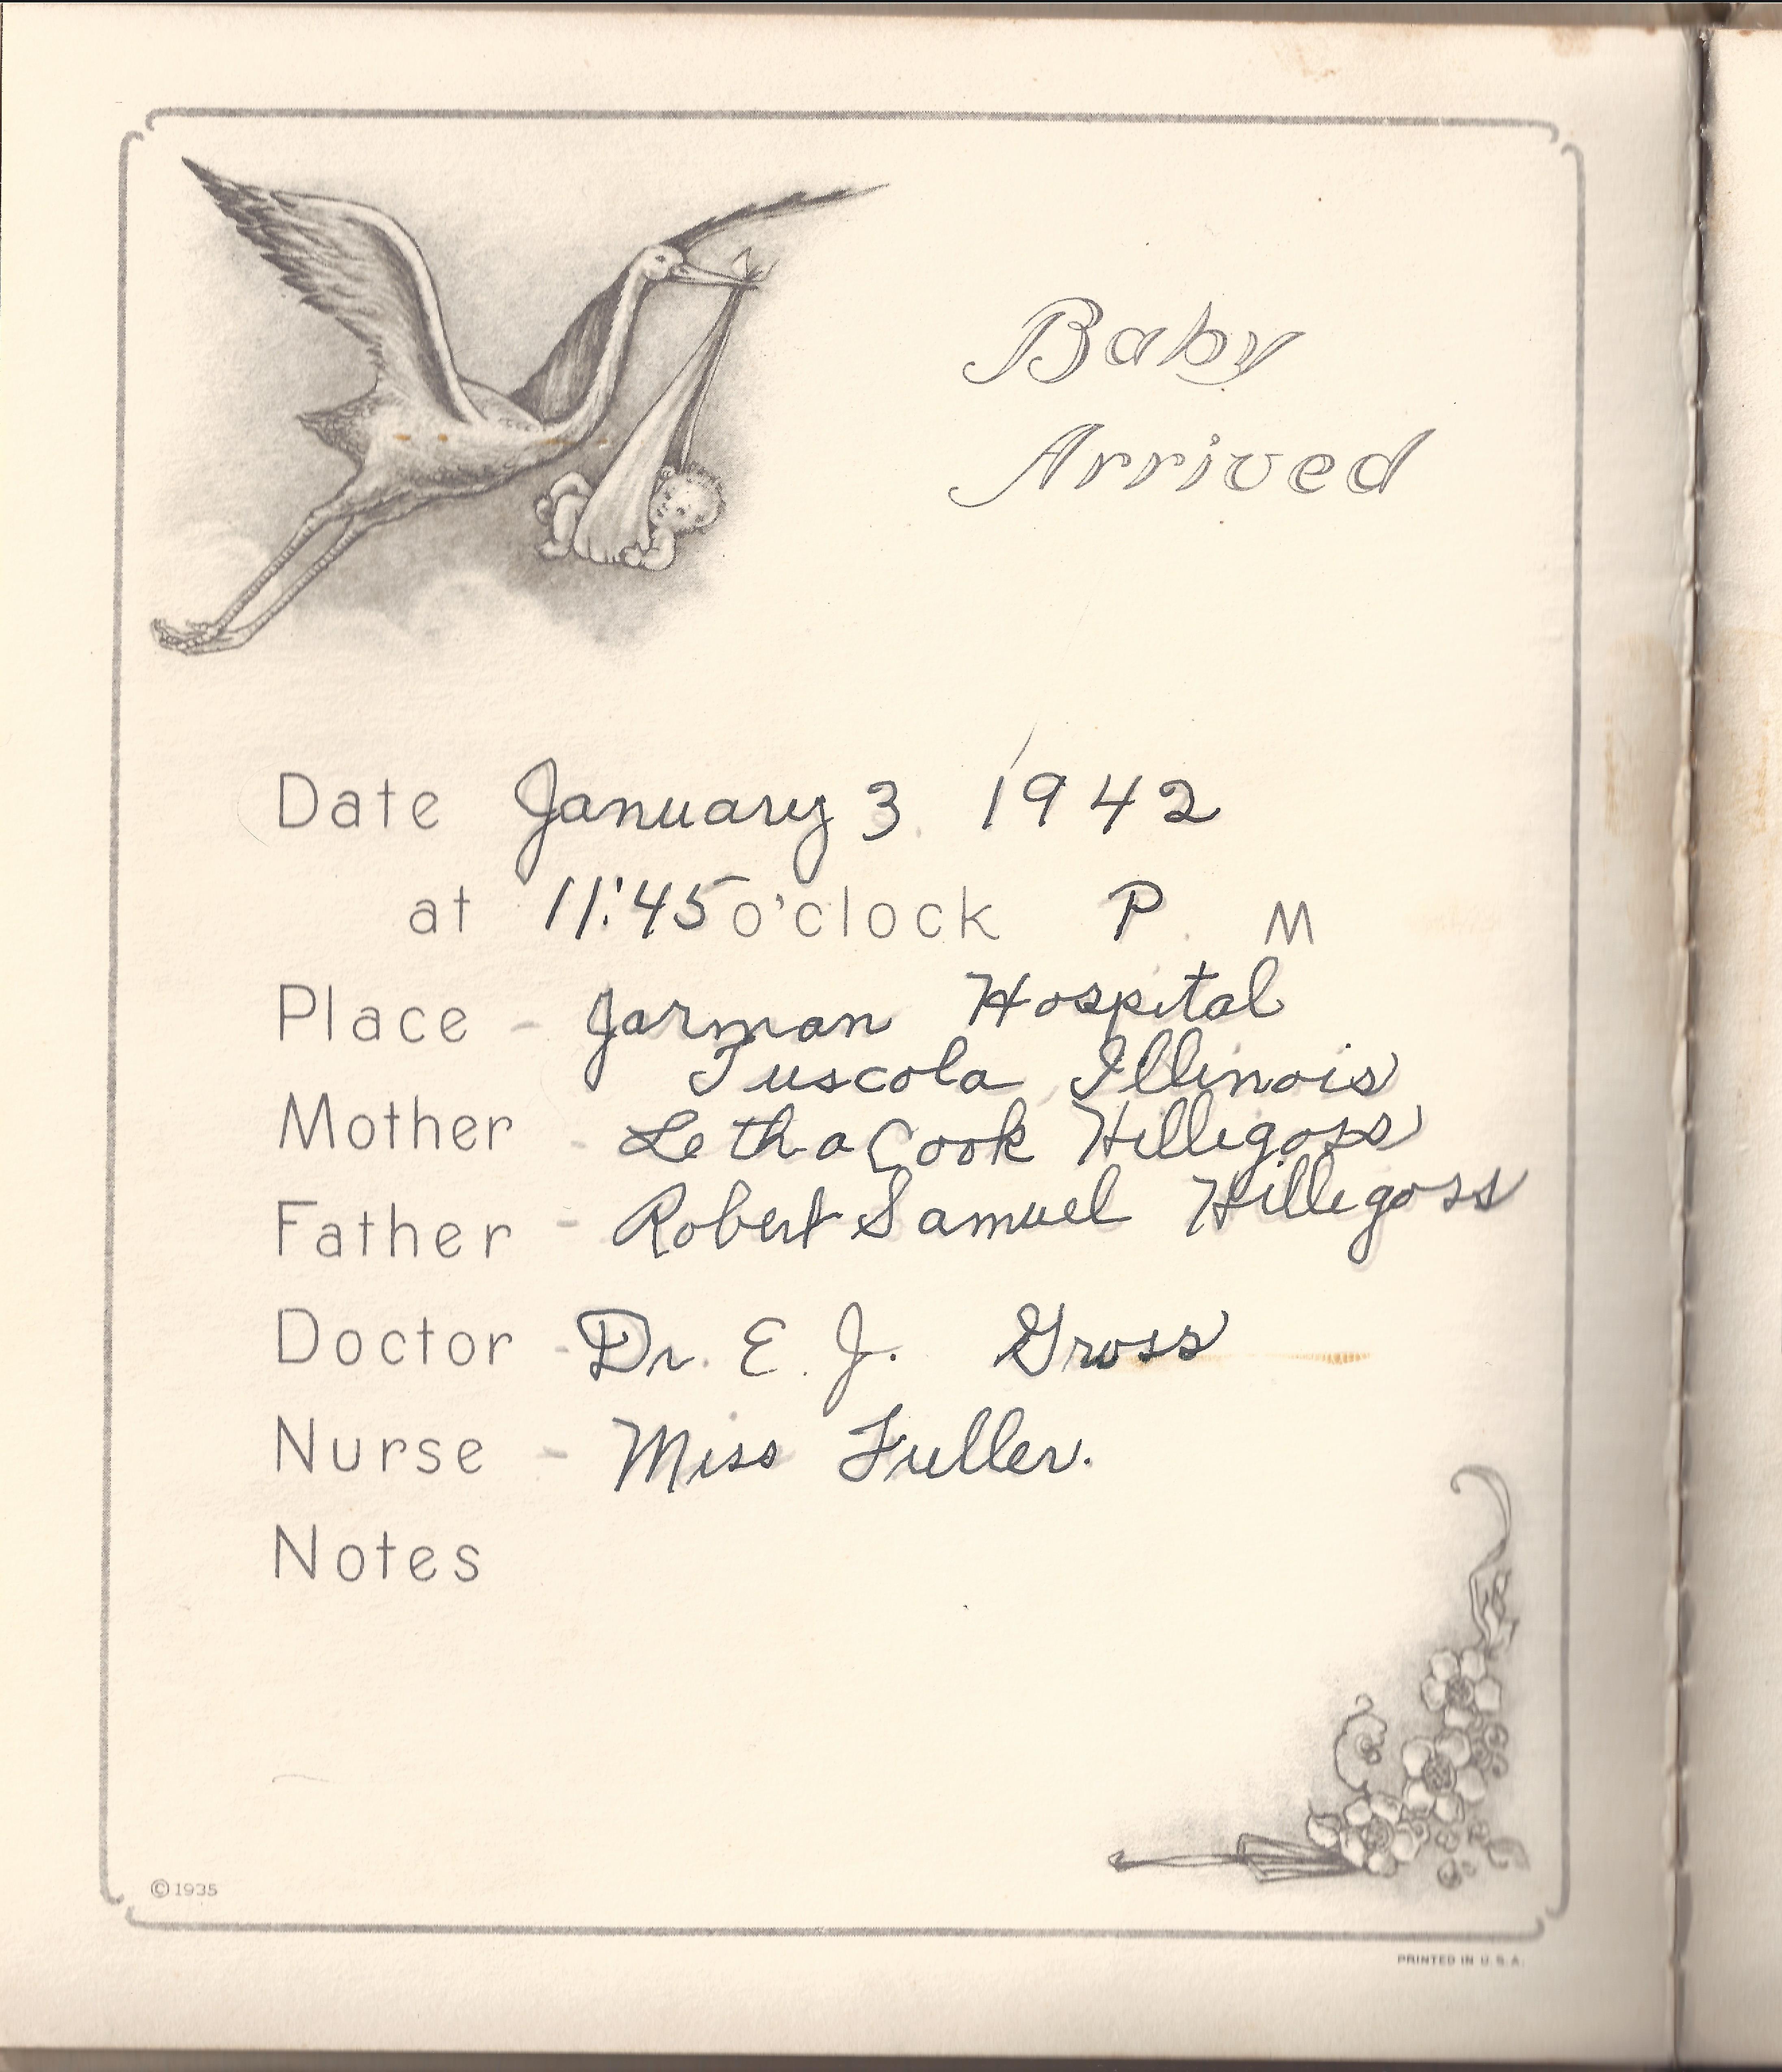 Baby
Arrived
Date January 3 1942
at 11:45 o'clock P. M
Place - Jarman Hospital
Tuscola Illinois
Mother - Letha Cook Hillegoss
Father - Robert Samuel Hillegoss
Doctor - Dr. E. J. Gross
Nurse - Miss Fuller.
Notes
©1935
PRINTED IN U.S.A.